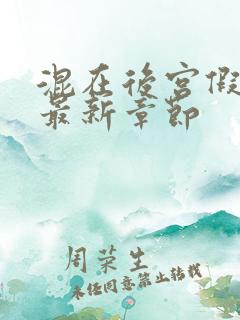 混在後宮假
最新章節
周荣生
未经同意禁止转载